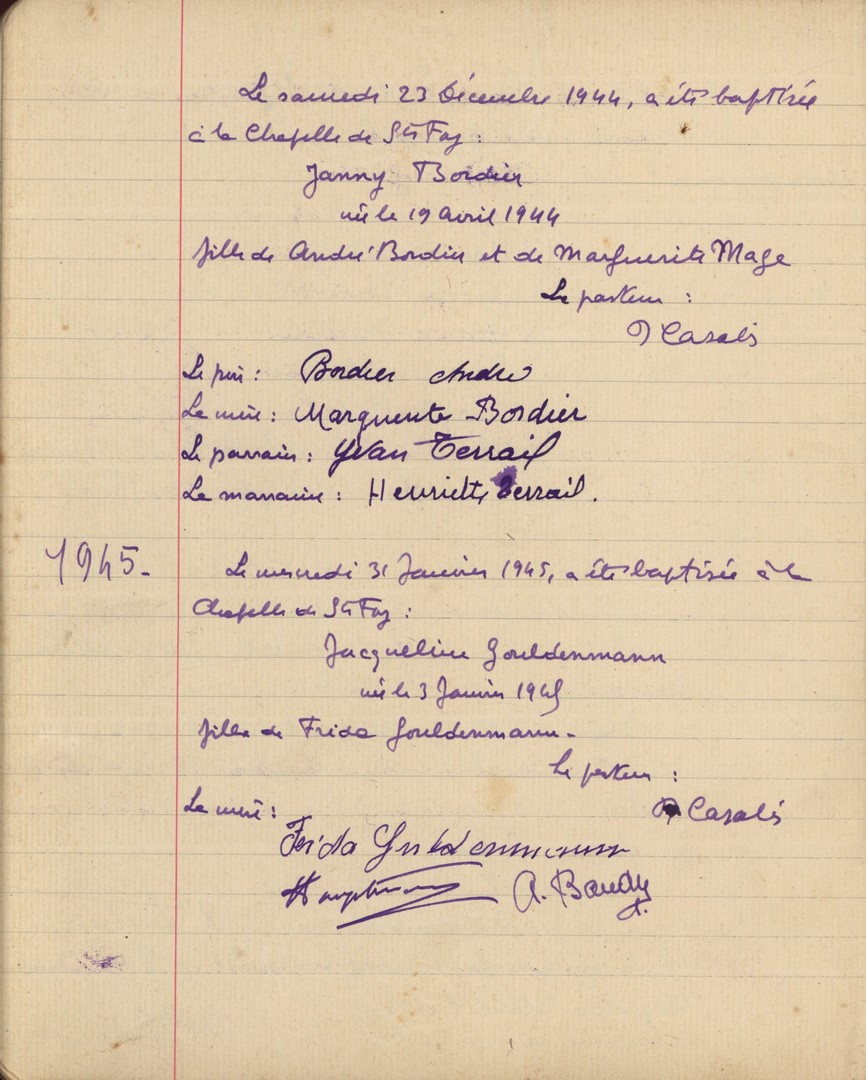 Le samedi 23 Décembre 1944, a été baptisée
à la Chapelle de Ste Foy :
Janny Bordier
née le 19 avril 1944
fille de André Bordier et de Marguerite Mage
Le pasteur :
Casalis
Le père : Bordier André
La mère : Marguerite Bordier
Le parrain : Yvan Terrail
La marraine : Henriette Terrail.
1945.
Le mercredi 31 Janvier 1945, a été baptisée à la
Chapelle de Ste Foy :
Jacqueline Gouldenmann
née le 3 Janvier 1945
fille de Frida Gouldenmann.
Le pasteur :
Casalis
La mère :
Frida
A. Baudy